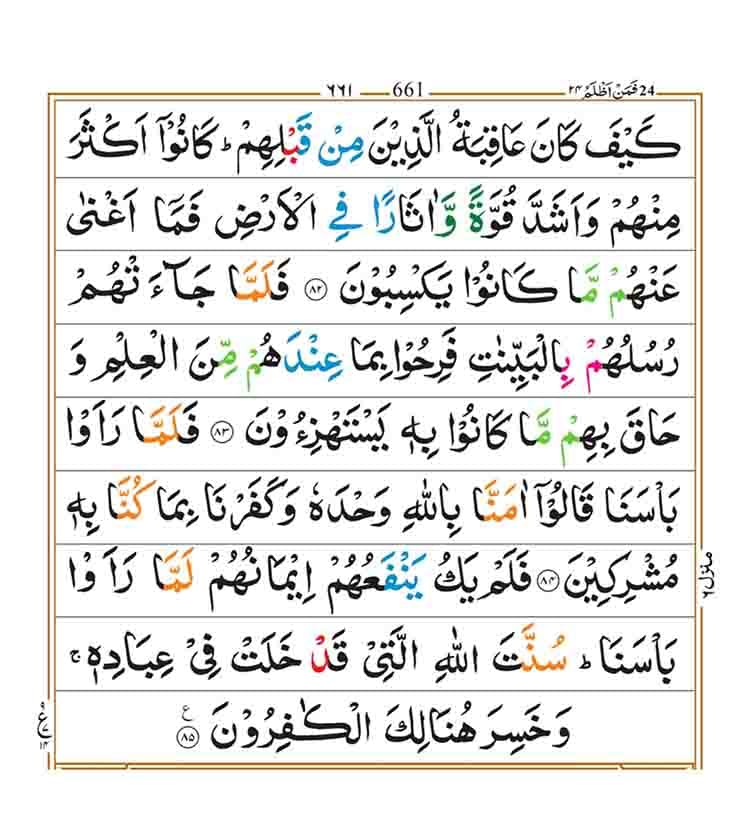 ٦٦١ 661 فَمَنْ اَظْلَمُ ٢٤ 24
كَيْفَ كَانَ عَاقِبَةُ الَّذِيْنَ مِنْ قَبْلِهِمْ ؕ كَانُوْۤا اَكْثَرَ
مِنْهُمْ وَاَشَدَّ قُوَّةً وَّاٰثَارًا فِي الْاَرْضِ فَمَاۤ اَغْنٰى
عَنْهُمْ مَّا كَانُوْا يَكْسِبُوْنَ ۝٨٢ فَلَمَّا جَآءَتْهُمْ
رُسُلُهُمْ بِالْبَيِّنٰتِ فَرِحُوْا بِمَا عِنْدَهُمْ مِّنَ الْعِلْمِ وَ
حَاقَ بِهِمْ مَّا كَانُوْا بِهٖ يَسْتَهْزِءُوْنَ ۝٨٣ فَلَمَّا رَاَوْا
بَاْسَنَا قَالُوْۤا اٰمَنَّا بِاللّٰهِ وَحْدَهٗ وَكَفَرْنَا بِمَا كُنَّا بِهٖ
مُشْرِكِيْنَ ۝٨٤ فَلَمْ يَكُ يَنْفَعُهُمْ اِيْمَانُهُمْ لَمَّا رَاَوْا
بَاْسَنَا ؕ سُنَّتَ اللّٰهِ الَّتِيْ قَدْ خَلَتْ فِيْ عِبَادِهٖ ۚ
وَخَسِرَ هُنَالِكَ الْكٰفِرُوْنَ ۝٨٥ ع
منزل ٦
٩
ع ٧
١٤